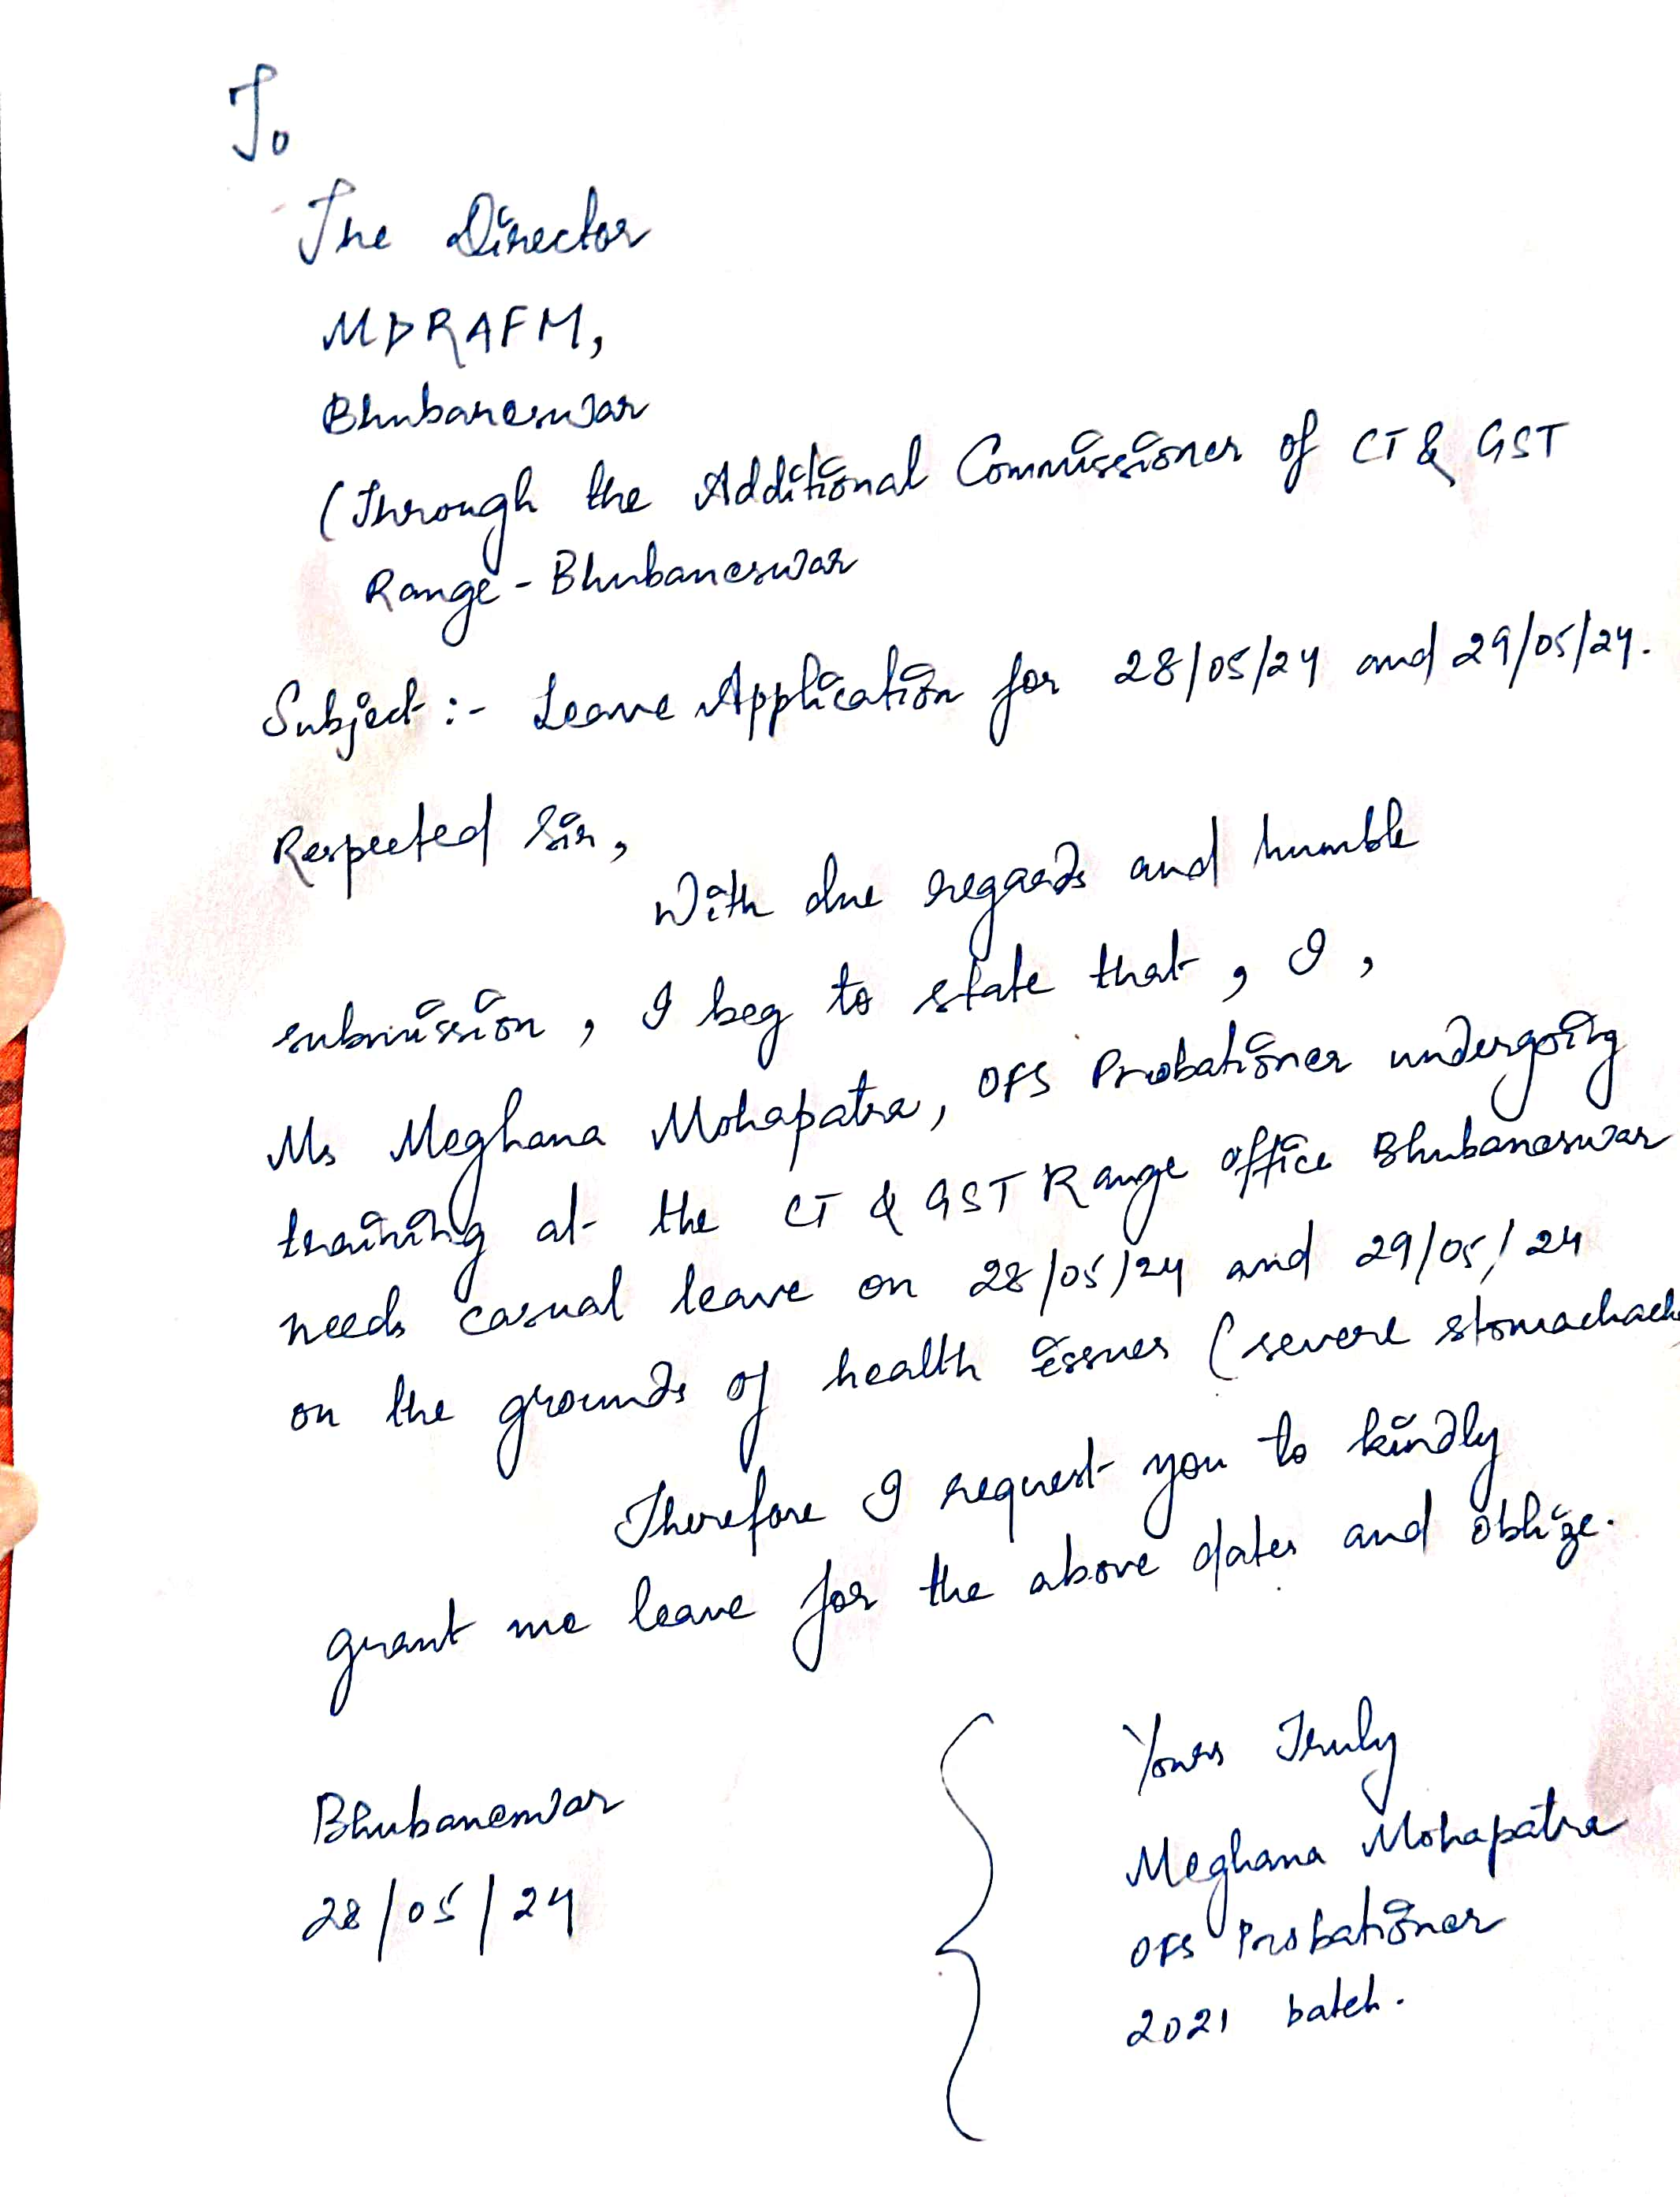 To
The Director
MDRAFM,
Bhubaneswar
(Through the Additional Commissioner of CT & GST
Range - Bhubaneswar
Subject :- Leave Application for 28/05/24 and 29/05/24.
Respected Sir,
With due regards and humble
submission, I beg to state that, I,
Ms Meghana Mohapatra, OFS Probationer undergoing
training at the CT & GST Range office Bhubaneswar
needs casual leave on 28/05/24 and 29/05/24
on the grounds of health issues (severe stomachach
Therefore I request you to kindly
grant me leave for the above dates and oblige.
Yours Truly
Bhubaneswar
Meghana Mohapatra
28/05/24
OFS Probationer
2021 batch.